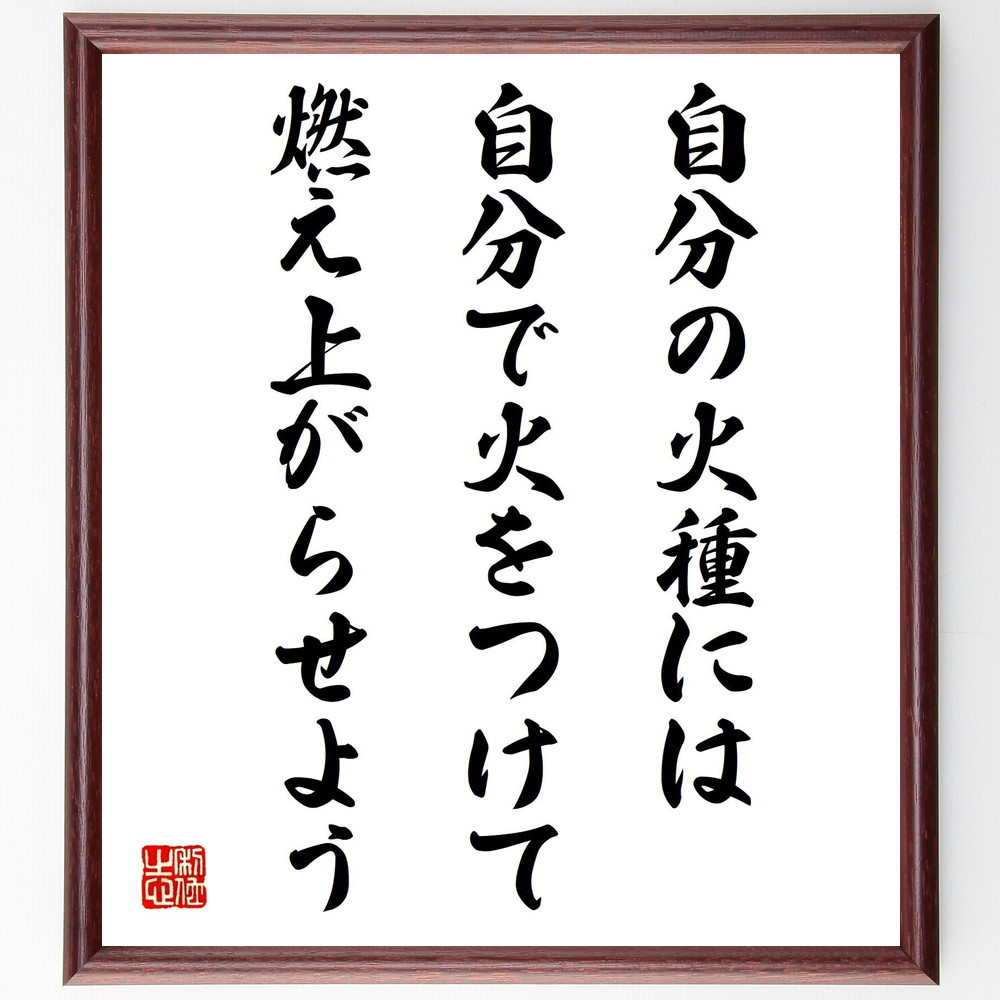 自分の火種には
自分で火をつけて
燃え上がらせよう